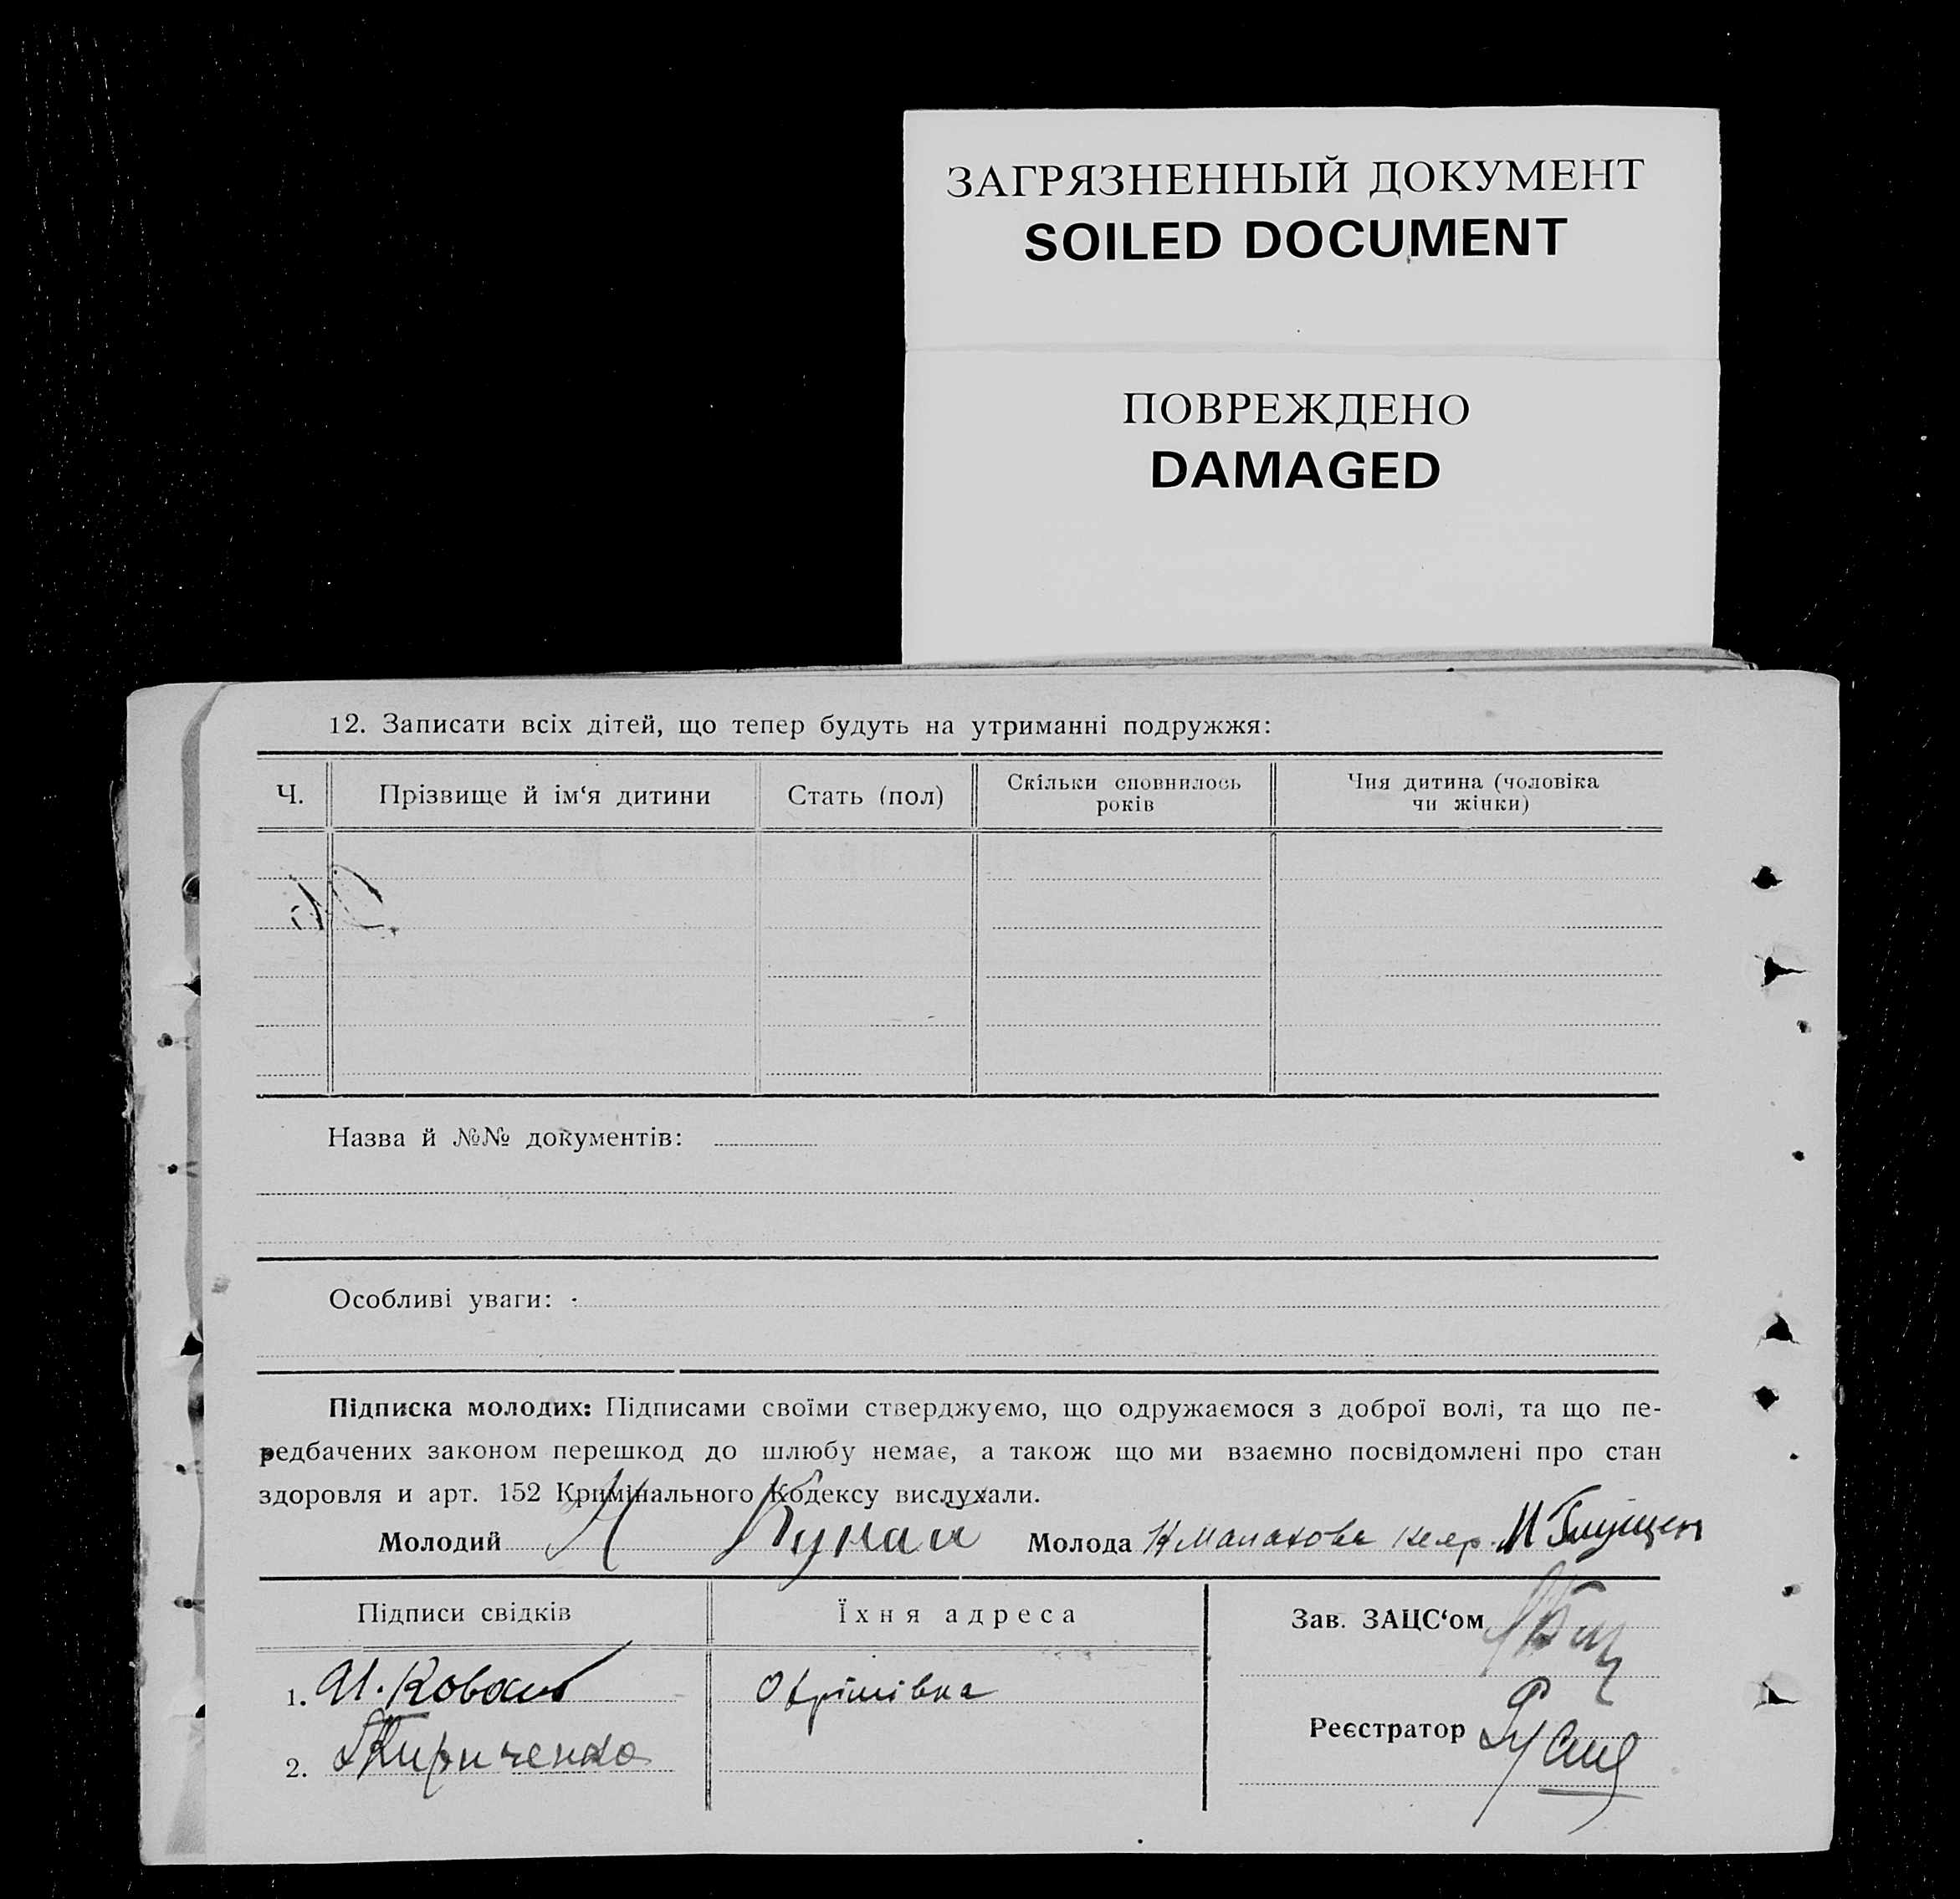 ЗАГРЯЗНЕННЫЙ ДОКУМЕНТ
SOILED DOCUMENT
ПОВРЕЖДЕНО
DAMAGED
12. Записати всіх дітей, що тепер будуть на утриманні подружжя:
Ч. Прізвище й ім‘я дитини Стать (пол) Скільки сповнилось років Чия дитина (чоловіка чи жінки)
Назва й №№ документів:
Особливі уваги:
Підписка молодих: Підписами своїми стверджуємо, що одружаємося з доброї волі, та що пе-
редбачених законом перешкод до шлюбу немає, а також що ми взаємно посвідомлені про стан
здоровля и арт. 152 Кримінального Кодексу вислухали.
Молодий Молода
Підписи свідків Їхня адреса Зав. ЗАЦС‘ом
1. И. Коваль Охрімівка
Реєстратор
2. Кириченко